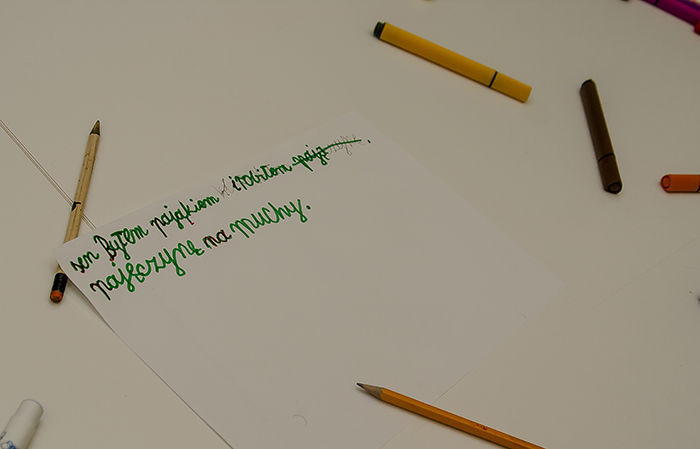 sen Byłem pająkiem i robiłem
pajęczynę na muchy.